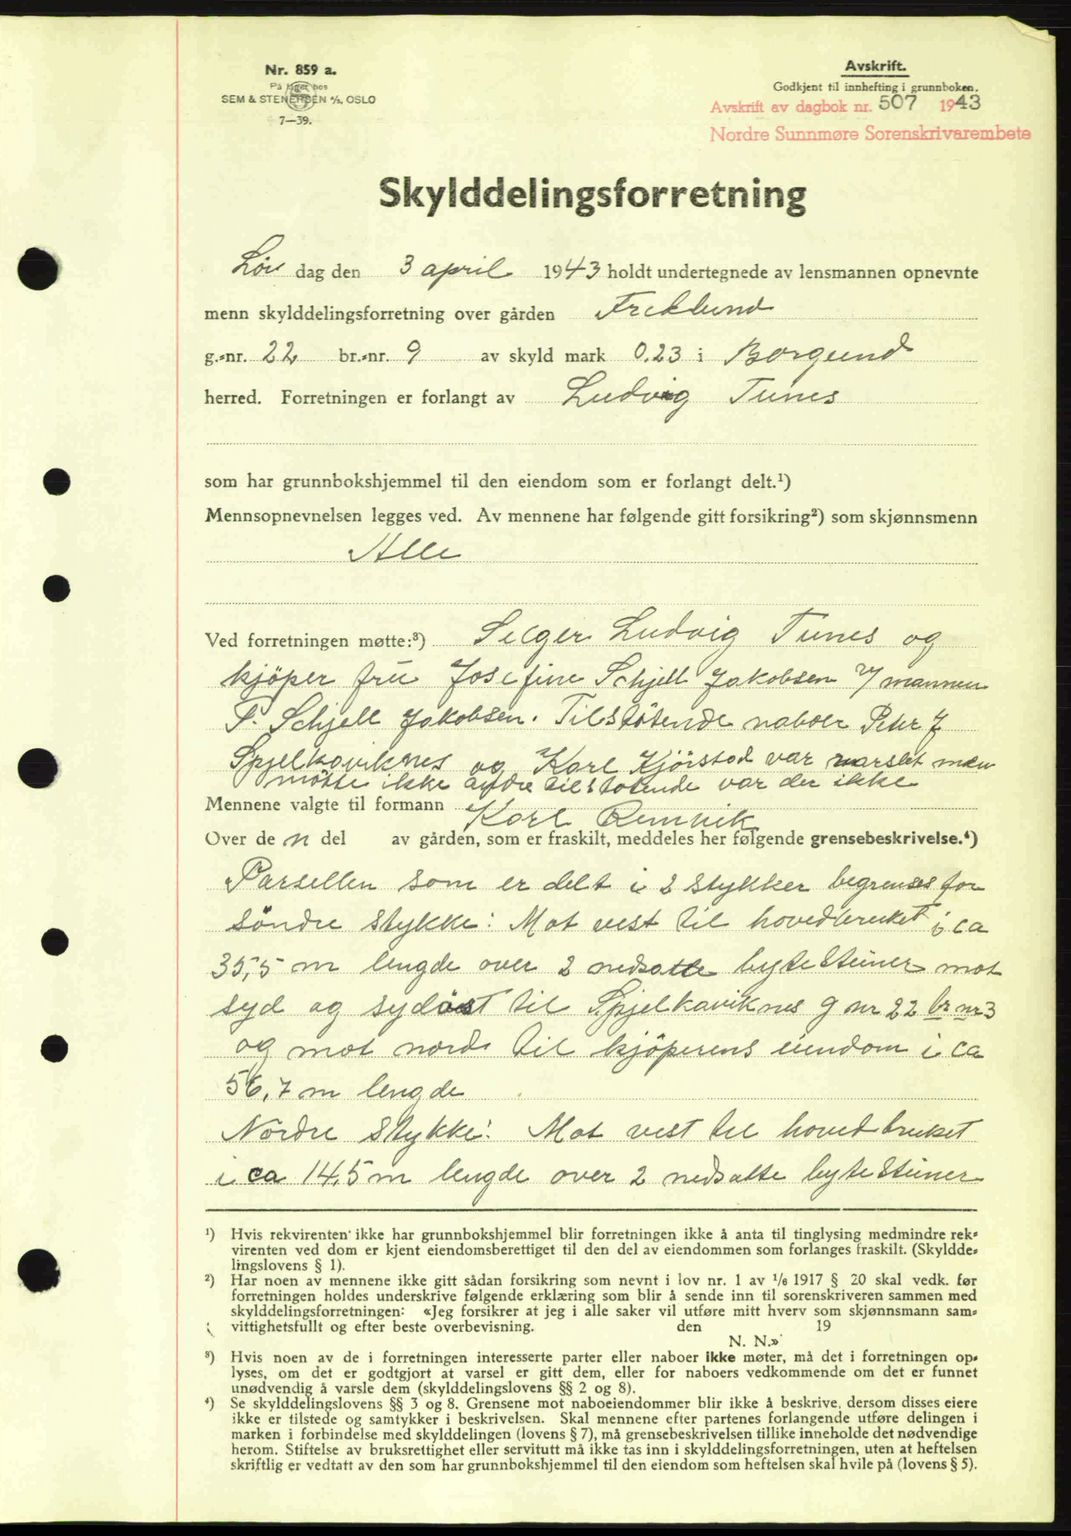 Nr. 859 a.
På lager hos
SEM & STENERSEN A/S, OSLO
7—39.
Avskrift.
Godkjent til innhefting i grunnboken.
Avskrift av dagbok nr. 507 1943
Nordre Sunnmøre Sorenskrivarembete
Skylddelingsforretning
Lør dag den 3 april 1943 holdt undertegnede av lensmannen opnevnte
menn skylddelingsforretning over gården Freklund
g.-nr. 22 br.-nr. 9 av skyld mark 0.23 i Borgund
herred. Forretningen er forlangt av Ludvig Tunes
som har grunnbokshjemmel til den eiendom som er forlangt delt.¹)
Mennsopnevnelsen legges ved. Av mennene har følgende gitt forsikring²) som skjønnsmenn
Alle
Ved forretningen møtte:³) Selger Ludvig Tunes og
kjöper fru Josefine Schjell Jakobsen v/ mannen
P. Schjell Jakobsen. Tilstötende naboer Peter J
Spjelkaviknes og Karl Kjörstad var varslet men
mötte ikke andre tilstötende var der ikke
Mennene valgte til formann Karl Remvik
Over de n del av gården, som er fraskilt, meddeles her følgende grensebeskrivelse.⁴)
Parsellen som er delt i 2 stykker begrenses for
söndre stykke: Mot vest til hovedbruket i ca
35,5 m lengde over 2 nedsatte bytesteiner mot
syd og sydöst til Spjelkaviknes g nr 22 br nr 3
og mot nord til kjöperens eiendom i ca
56,7 m lengde
Nordre stykke: Mot vest til hovedbruket
i ca 14,5 m lengde over 2 nedsatte bytesteiner
¹) Hvis rekvirenten ikke har grunnbokshjemmel blir forretningen ikke å anta til tinglysing medmindre rek-
virenten ved dom er kjent eiendomsberettiget til den del av eiendommen som forlanges fraskilt. (Skyldde-
lingslovens § 1).
²) Har noen av mennene ikke gitt sådan forsikring som nevnt i lov nr. 1 av 1/6 1917 § 20 skal vedk. før
forretningen holdes underskrive følgende erklæring som blir å sende inn til sorenskriveren sammen med
skylddelingsforretningen: «Jeg forsikrer at jeg i alle saker vil utføre mitt hverv som skjønnsmann sam-
vittighetsfullt og efter beste overbevisning. den 19
N. N.»
³) Hvis noen av de i forretningen interesserte parter eller naboer ikke møter, må det i forretningen op-
lyses, om det er godtgjort at varsel er gitt dem, eller for naboers vedkommende om det er funnet
unødvendig å varsle dem (skylddelingslovens §§ 2 og 8).
⁴) Se skylddelingslovens §§ 3 og 8. Grensene mot naboeiendommer blir ikke å beskrive, dersom disses eiere
ikke er tilstede og samtykker i beskrivelsen. Skal mennene efter partenes forlangende utføre delingen i
marken i forbindelse med skylddelingen (lovens § 7), må grensebeskrivelsen tillike inneholde det nødvendige
herom. Stiftelse av bruksrettighet eller servitutt må ikke tas inn i skylddelingsforretningen, uten at heftelsen
skriftlig er vedtatt av den som har grunnbokshjemmel til den eiendom som heftelsen skal hvile på (lovens § 5).